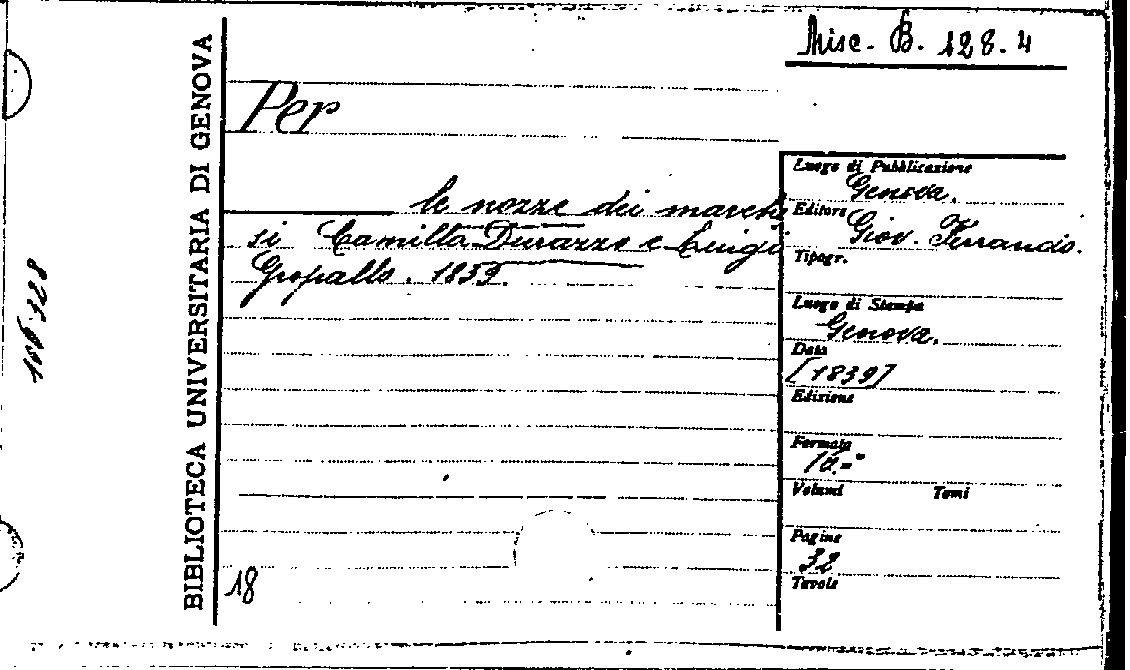 Misc. B. 128.4
BIBLIOTECA UNIVERSITARIA DI GENOVA
Per
le nozze dei marche
si Camilla Durazzo e Luigi
Gropallo. 1839.
18
Luogo di Pubblicazione
Genova.
Editore Giov. Ferrando.
Tipogr.
Luogo di Stampa
Genova.
Data
[1839]
Edizione
Formato
Volumi Tomi
Pagine
32
Tavole